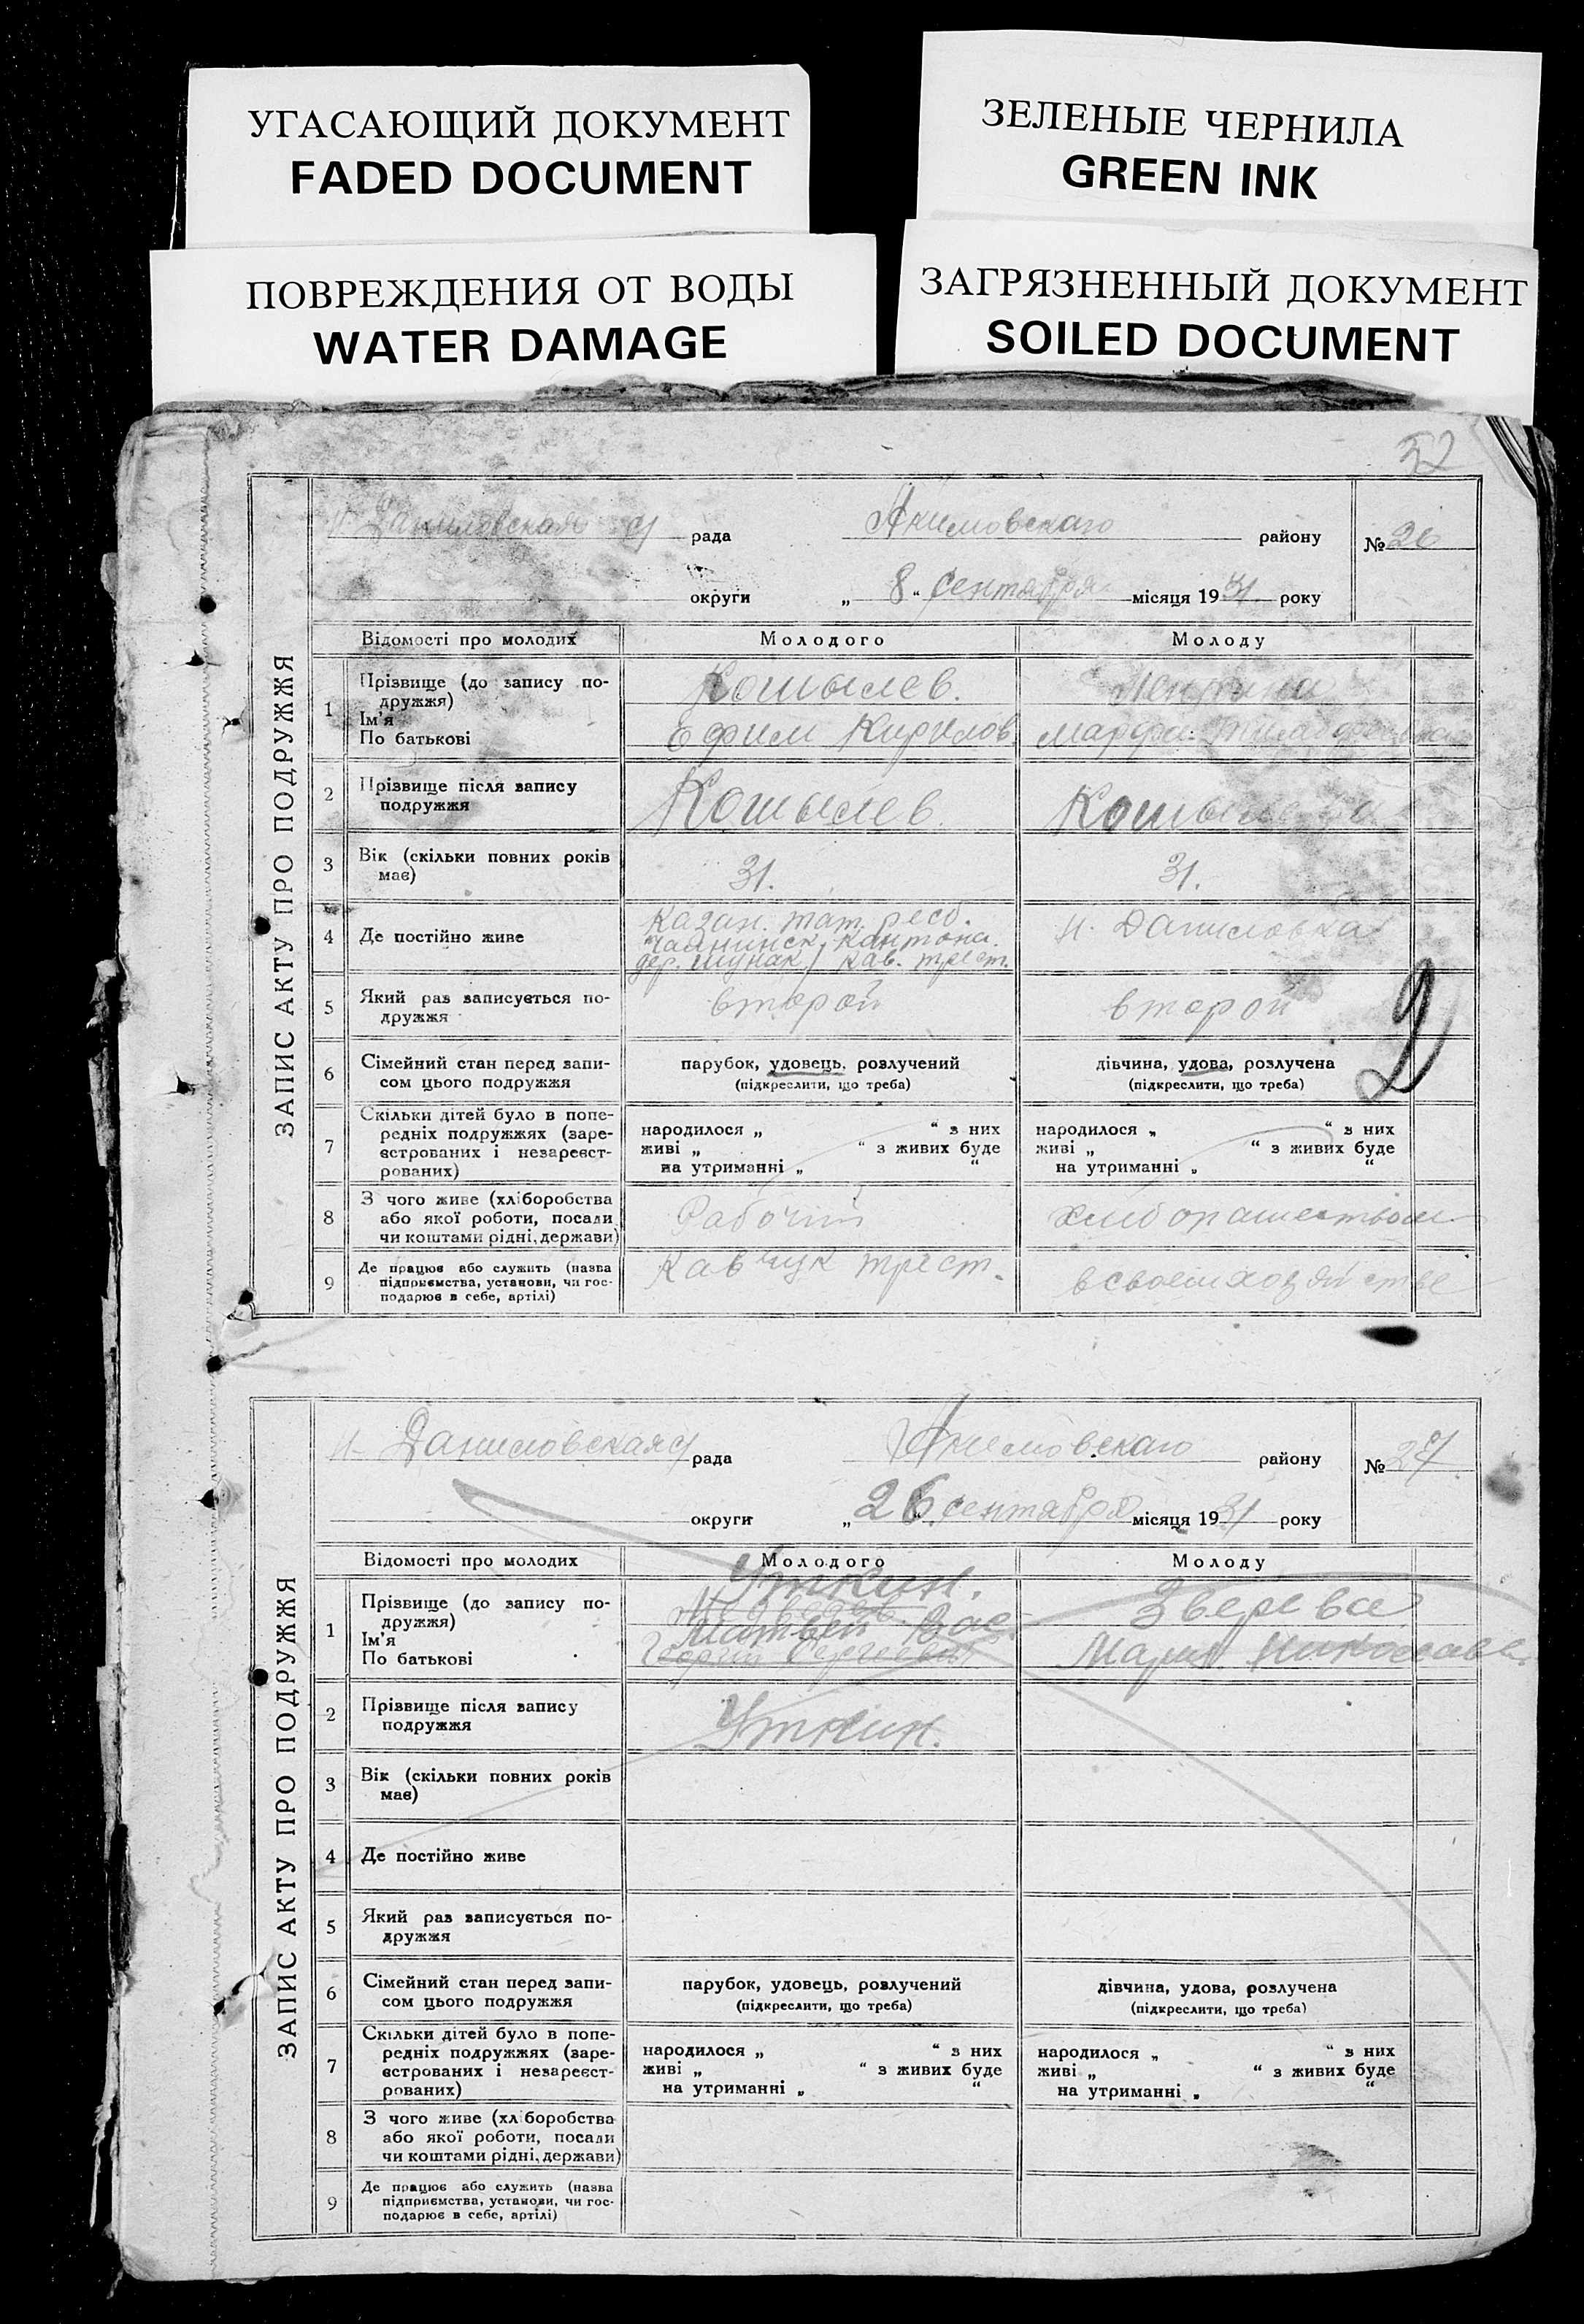 УГАСАЮЩИЙ ДОКУМЕНТ
FADED DOCUMENT
ЗЕЛЕНЫЕ ЧЕРНИЛА
GREEN INK
ПОВРЕЖДЕНИЯ ОТ ВОДЫ
WATER DAMAGE
ЗАГРЯЗНЕННЫЙ ДОКУМЕНТ
SOILED DOCUMENT
32
ЗАПИС АКТУ ПРО ПОДРУЖЖЯ
Н. Даниловская с/ рада Акимовскаго району № 26
округи „ 8 “ Сентября місяця 1931 року
Відомості про молодих Молодого Молоду
1 Прізвище (до запису подружжя) Кошылев.
Ім'я
По батькові Ефим Кирилов. Марфа
2 Прізвище після запису подружжя Кошылев. Кошылева
3 Вік (скільки повних років має) 31. 31.
4 Де постійно живе Казан. тат. ресб. Н. Даниловка
кантона.
дер. Кав. трест.
5 Який раз записується подружжя второй второй
6 Сімейний стан перед записом цього подружжя парубок, удовець, розлучений дівчина, удова, розлучена
(підкреслити, що треба) (підкреслити, що треба)
2
7 Скільки дітей було в попередніх подружжях (зареєстрованих і незареєстрованих) народилося „ “ з них народилося „ “ з них
живі „ “ з живих буде живі „ “ з живих буде
на утриманні „ “ на утриманні „ “
8 З чого живе (хліборобства або якої роботи, посади чи коштами рідні, держави) Рабочий
9 Де працює або служить (назва підприємства, установи, чи господарює в себе, артілі) Кавчук трест. в своем хозяйстве
ЗАПИС АКТУ ПРО ПОДРУЖЖЯ
Н- Даниловская с/ рада Акимовскаго району № 27
округи „ 26 “ сентября місяця 1931 року
Відомості про молодих Молодого Молоду
1 Прізвище (до запису подружжя) Уткин. Зверева
Ім'я Матвей Вас
По батькові Георгий Сергеевич Мария Николаевн.
2 Прізвище після запису подружжя Уткин.
3 Вік (скільки повних років має)
4 Де постійно живе
5 Який раз записується подружжя
6 Сімейний стан перед записом цього подружжя парубок, удовець, розлучений дівчина, удова, розлучена
(підкреслити, що треба) (підкреслити, що треба)
7 Скільки дітей було в попередніх подружжях (зареєстрованих і незареєстрованих) народилося „ “ з них народилося „ “ з них
живі „ “ з живих буде живі „ “ з живих буде
на утриманні „ “ на утриманні „ “
8 З чого живе (хліборобства або якої роботи, посади чи коштами рідні, держави)
9 Де працює або служить (назва підприємства, установи, чи господарює в себе, артілі)